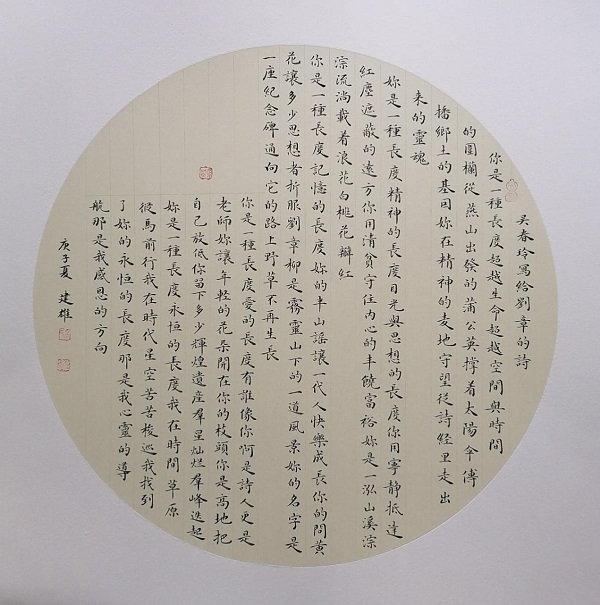 吴春玲寫给劉章的詩
你是一種長度超越生命超越空間與時間
的圍欄從燕山出發的蒲公英撐着太陽伞傳
播鄉土的基因妳在精神的麦地守望從詩經里走出
来的靈魂
妳是一種長度精神的長度目光與思想的長度你用寧静抵達
紅塵遮蔽的遠方你用清貧守住内心的丰饒富裕妳是一泓山溪淙
淙流淌載着浪花白桃花瓣紅
你是一種長度記憶的長度妳的半山謡讓一代人快樂成長你的問黄
花讓多少思想者折服劉章柳是霧靈山下的一道風景妳的名字是
一座紀念碑通向它的路上野草不再生長
你是一種長度愛的長度有誰像你啊是詩人更是
老師妳讓年轻的花朵開在你的枝頭你是高地把
自己放低你留下多少輝煌遺産羣星灿烂羣峰迭起
妳是一種長度永恒的長度我在時間草原
從馬前行我在時代星空苦苦梭巡我找到
了妳的永恒的長度那是我心靈的導
航那是我感恩的方向
庚子夏 建雄